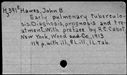 Hawes, John B.
Early pulmonary tuberculo-
sis: Diagnosis, prognosis and trea-
tment. With preface by R.C. Cabot
New York, Wood and Co, 1913.
114 p. with ill. &